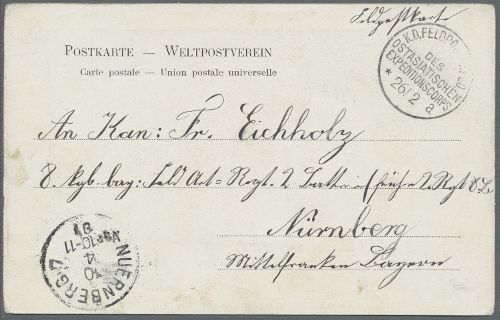 Feldpostkarte
POSTKARTE — WELTPOSTVEREIN
Carte postale — Union postale universelle
K.D. FELDPO
DES
OSTASIATISCHEN
EXPEDITIONSCORPS
* 26/2 a
An Kan: Fr. Eichholz
8. kgb bay: Feld Art=Regt. 2 Batt (früh 2 Regt 8
Nürnberg
Mittelfranken Bayern
NUERNBERG
10-11